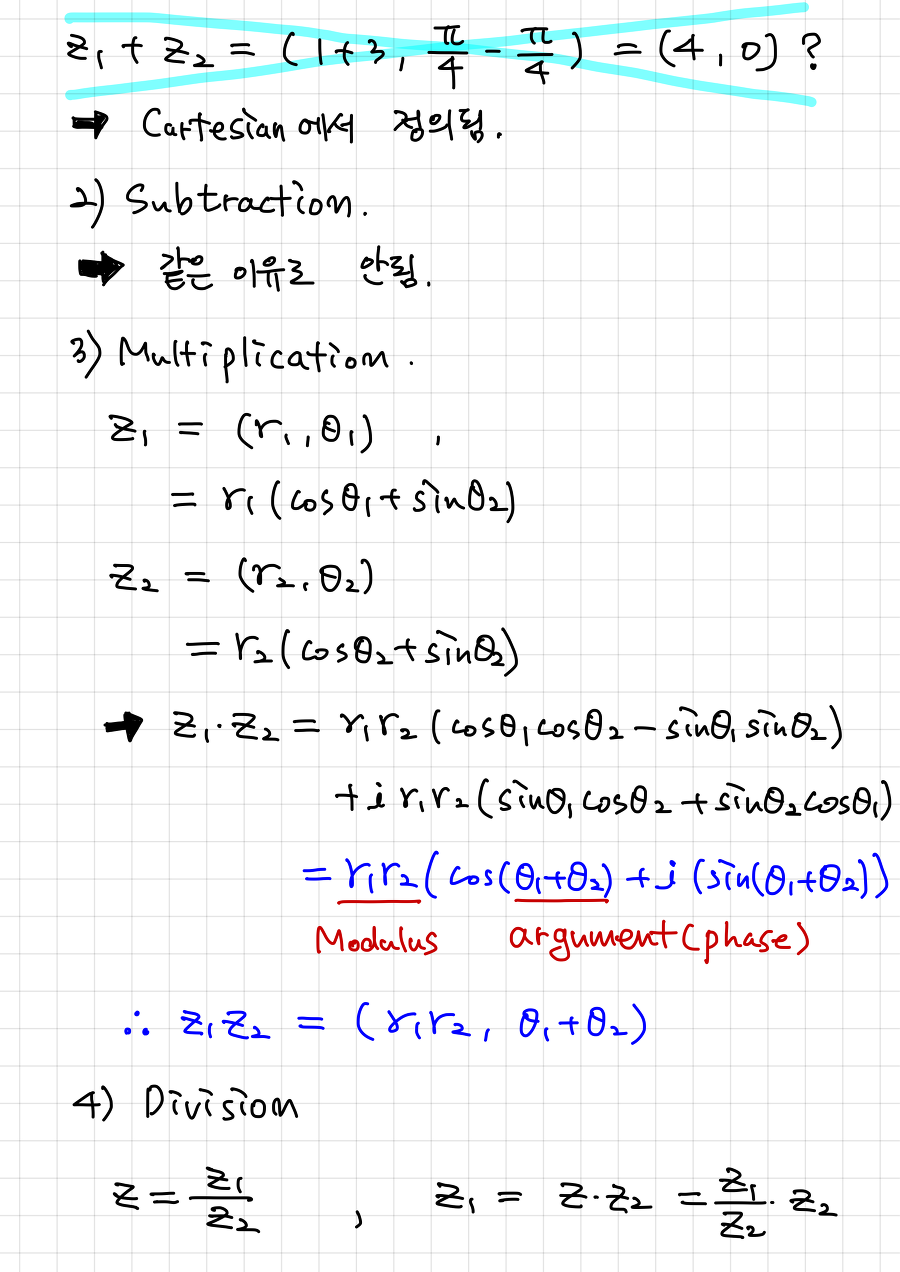 z₁ + z₂ = (1+3, π/4 - π/4) = (4, 0) ?
➡ Cartesian 에서 정의됨.
2) Subtraction.
➡ 같은 이유로 안됨.
3) Multiplication.
z₁ = (r₁, θ₁) ,
= r₁ (cosθ₁ + sinθ₂)
z₂ = (r₂, θ₂)
= r₂ (cosθ₂ + sinθ₂)
➡ z₁·z₂ = r₁r₂ (cosθ₁cosθ₂ - sinθ₁sinθ₂)
+ i r₁r₂ (sinθ₁cosθ₂ + sinθ₂cosθ₁)
= r₁r₂ (cos(θ₁+θ₂) + i (sin(θ₁+θ₂))
Modulus argument(phase)
∴ z₁z₂ = (r₁r₂, θ₁+θ₂)
4) Division
z = z₁/z₂ , z₁ = z·z₂ = z₁/z₂ · z₂